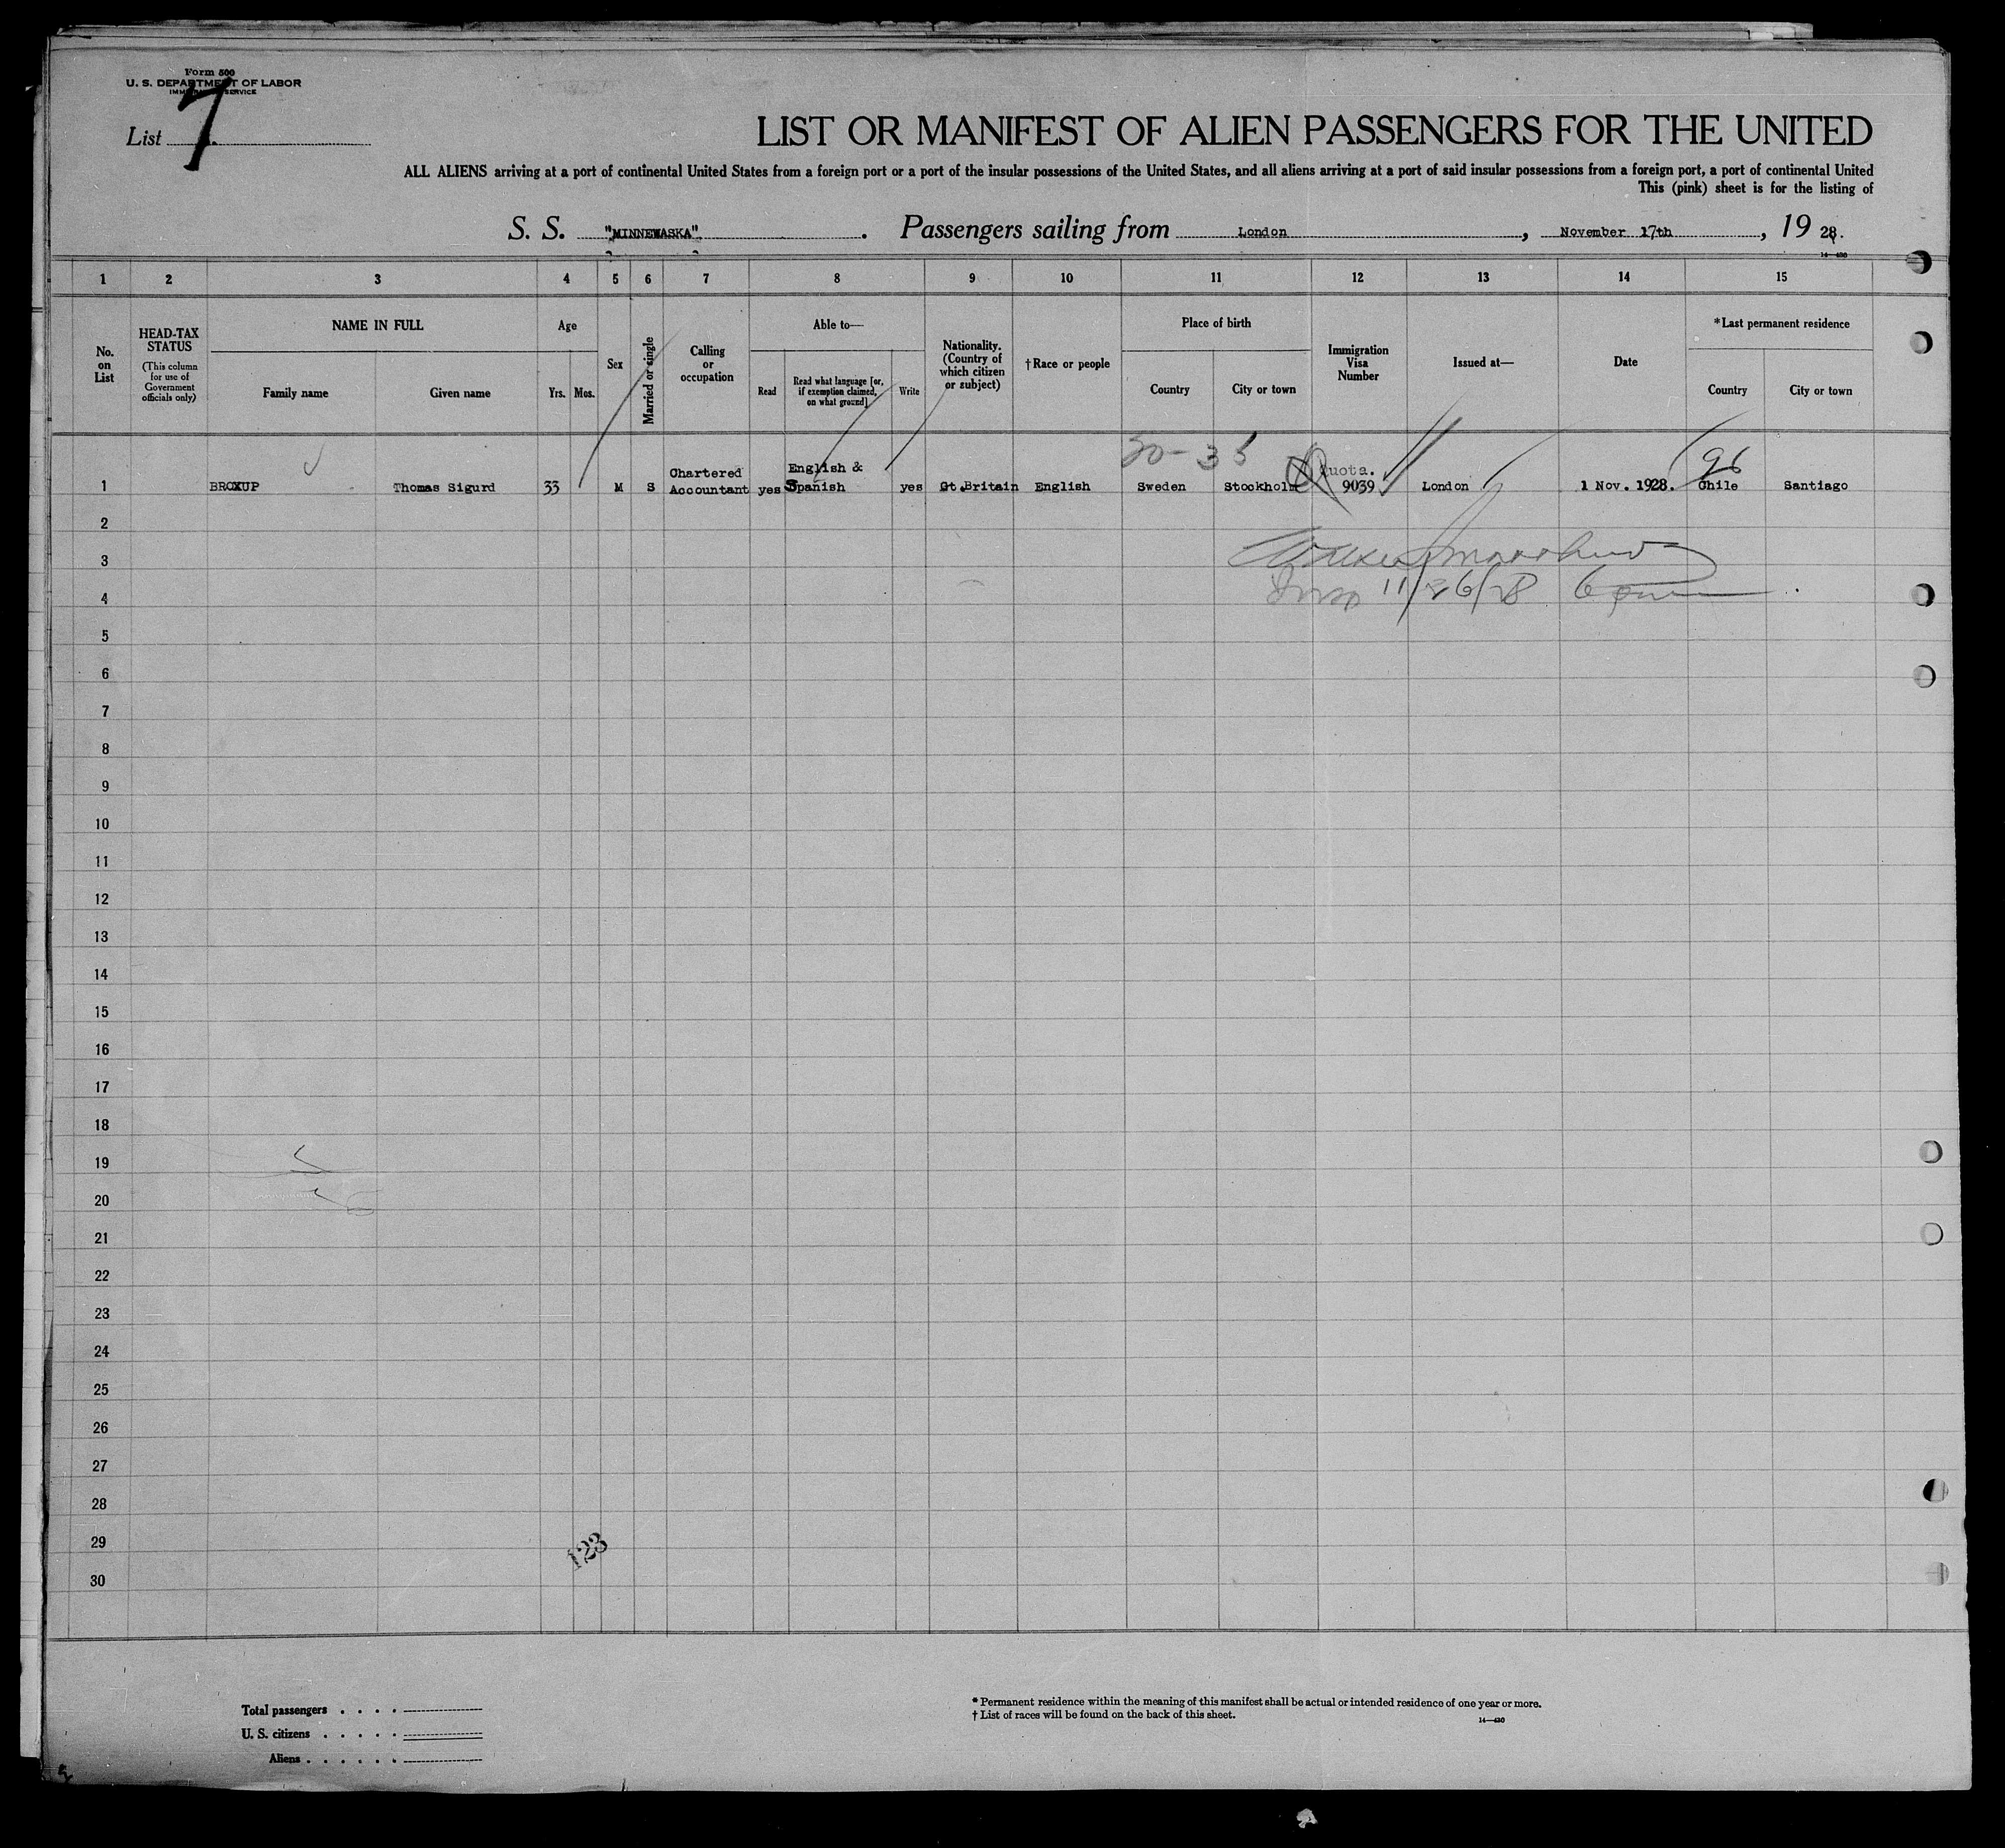 Form 500
U. S. DEPARTMENT OF LABOR
IMMIGRATION SERVICE
List 7
LIST OR MANIFEST OF ALIEN PASSENGERS FOR THE UNITED
ALL ALIENS arriving at a port of continental United States from a foreign port or a port of the insular possessions of the United States, and all aliens arriving at a port of said insular possessions from a foreign port, a port of continental United
This (pink) sheet is for the listing of
S. S. "MINNEWASKA". Passengers sailing from London, November 17th, 19 28.
14—430
1 2 3 4 5 6 7 8 9 10 11 12 13 14 15
No. on List
HEAD-TAX STATUS
(This column for use of Government officials only)
NAME IN FULL
Family name Given name
Age
Yrs. Mos.
Sex
Married or single
Calling or occupation
Able to—
Read
Read what language [or, if exemption claimed, on what ground]
Write
Nationality. (Country of which citizen or subject)
†Race or people
Place of birth
Country City or town
Immigration Visa Number
Issued at—
Date
*Last permanent residence
Country City or town
1 BROXUP Thomas Sigurd 33 M S Chartered Accountant yes English & Spanish yes Gt.Britain English Sweden Stockholm Quota. 9039 London 1 Nov. 1928. Chile Santiago
96
2
3
4 11/26/28
5
6
7
8
9
10
11
12
13
14
15
16
17
18
19
20
21
22
23
24
25
26
27
28
29
30
123
Total passengers . . . .
U. S. citizens . . . . .
Aliens . . . . . .
* Permanent residence within the meaning of this manifest shall be actual or intended residence of one year or more.
† List of races will be found on the back of this sheet.
14—430